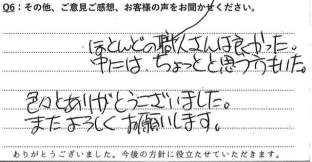 Q6：その他、ご意見ご感想、お客様の声をお聞かせください。
ほとんどの職人さんは良かった。
中には、ちょっとと思う方もいた。
色々とありがとうございました。
またよろしくお願いします。
ありがとうございました。今後の方針に役立たせていただきます。